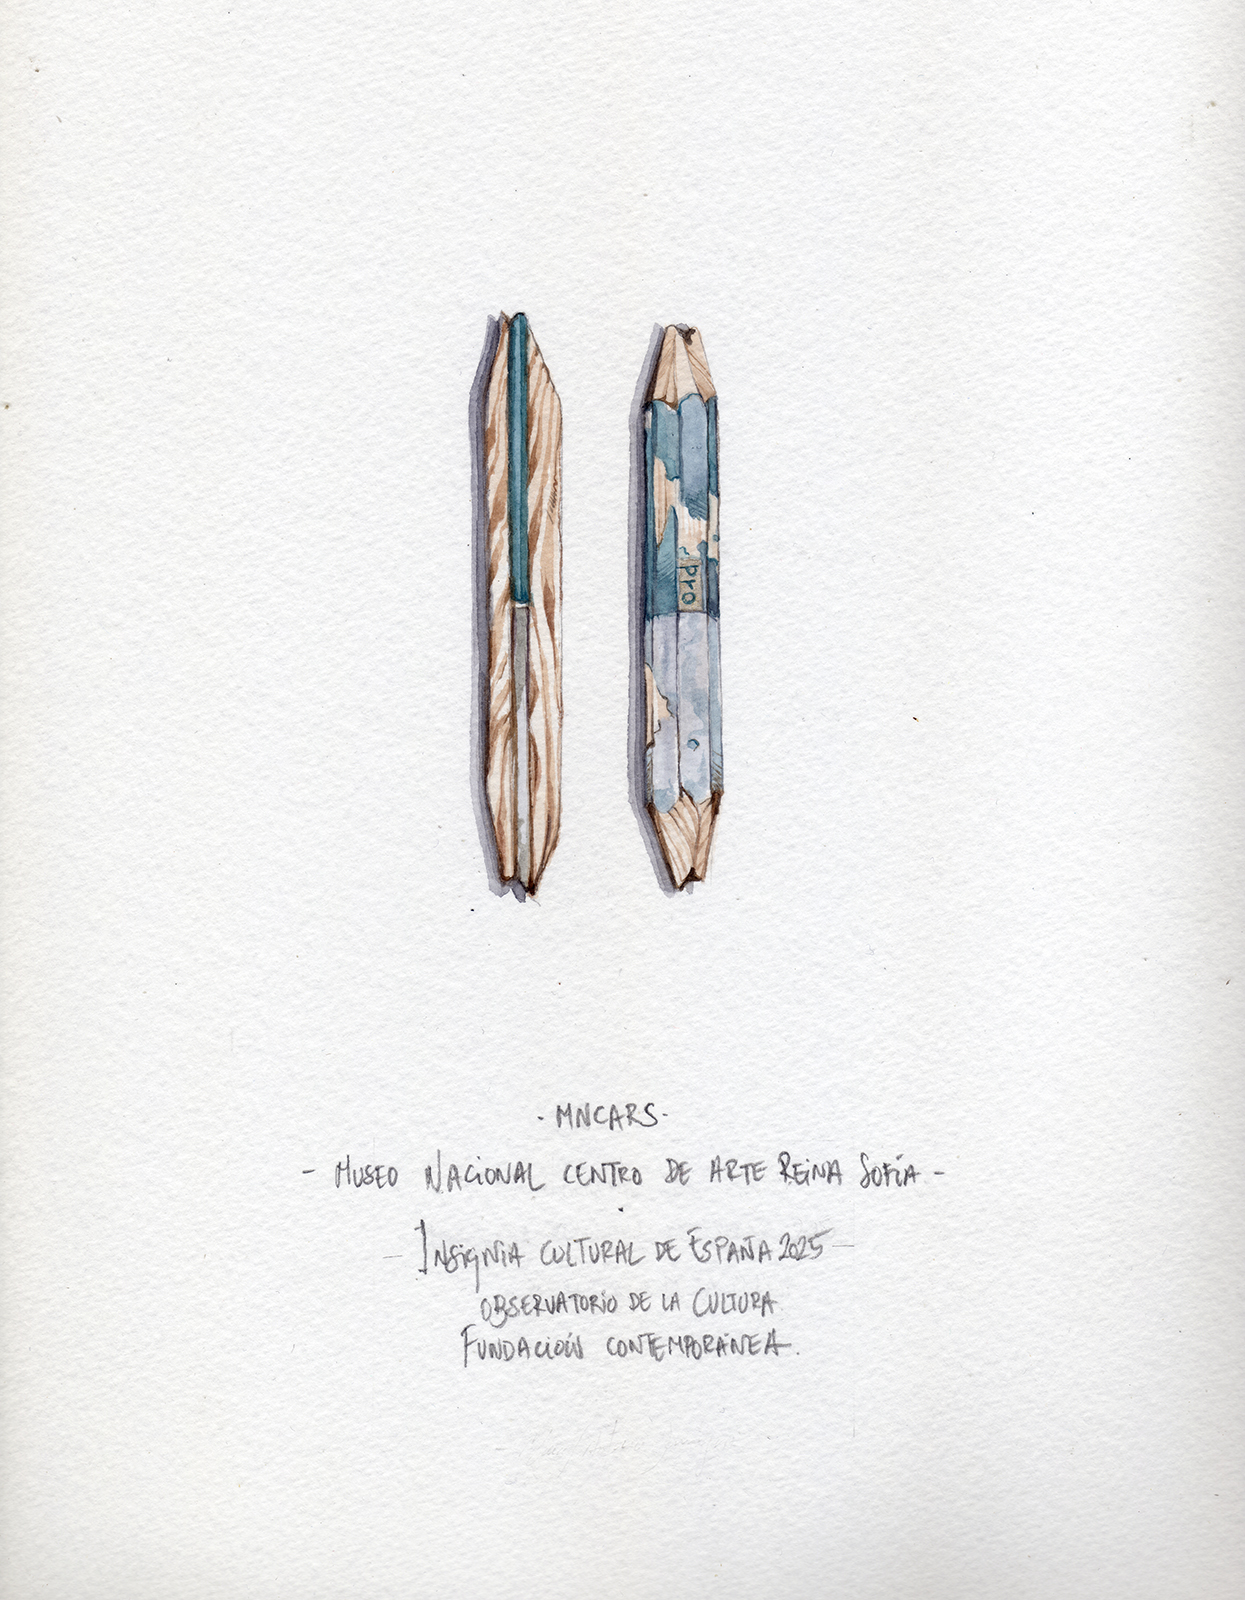 pro
- MNCARS -
- MUSEO NACIONAL CENTRO DE ARTE REINA SOFÍA -
- INSIGNIA CULTURAL DE ESPAÑA 2025 -
OBSERVATORIO DE LA CULTURA
FUNDACIÓN CONTEMPORÁNEA.